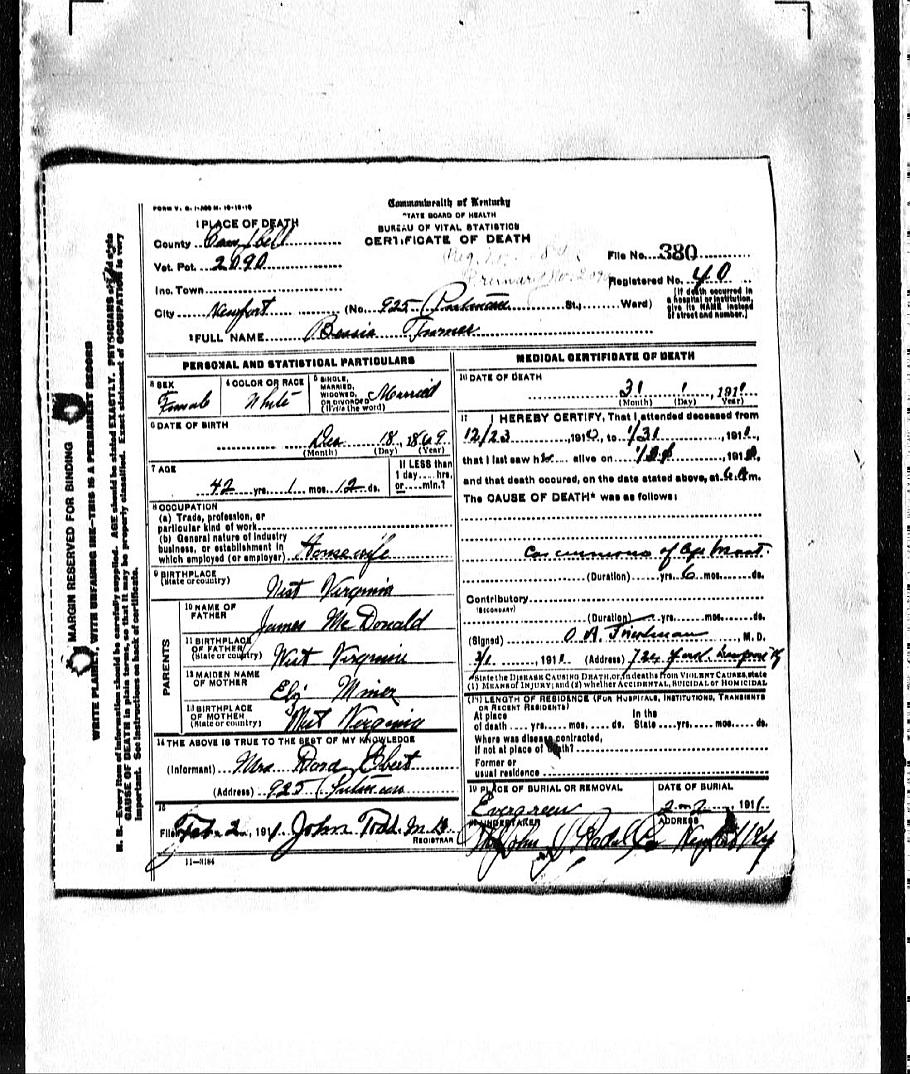 FORM V. S. 1-A
Commonwealth of Kentucky
STATE BOARD OF HEALTH
BUREAU OF VITAL STATISTICS
CERTIFICATE OF DEATH
1 PLACE OF DEATH
County Campbell
Vot. Pct. 2090
Inc. Town
City Newport (No. 925 Putnam St., Ward)
File No. 380
Registered No. 40
[If death occurred in a hospital or institution, give its NAME instead of street and number.]
2 FULL NAME Bessie Turner
PERSONAL AND STATISTICAL PARTICULARS
3 SEX Female
4 COLOR OR RACE White
5 SINGLE, MARRIED, WIDOWED, OR DIVORCED (Write the word) Married
6 DATE OF BIRTH
Dec 18, 1869
(Month) (Day) (Year)
7 AGE
42 yrs. 1 mos. 12 ds.
If LESS than 1 day ... hrs. or ... min.?
8 OCCUPATION
(a) Trade, profession, or particular kind of work
(b) General nature of industry business, or establishment in which employed (or employer) Housewife
9 BIRTHPLACE (State or country) West Virginia
PARENTS
10 NAME OF FATHER James McDonald
11 BIRTHPLACE OF FATHER (State or country) West Virginia
12 MAIDEN NAME OF MOTHER Eliz Miner
13 BIRTHPLACE OF MOTHER (State or country) West Virginia
14 THE ABOVE IS TRUE TO THE BEST OF MY KNOWLEDGE
(Informant) Mrs Dora Ebert
(Address) 925 Putnam
15
Filed Feb. 2, 1911 John Todd M.D.
REGISTRAR
11-3184
MEDICAL CERTIFICATE OF DEATH
16 DATE OF DEATH
31 1, 1911
(Month) (Day) (Year)
17 I HEREBY CERTIFY, That I attended deceased from
12/23, 1910, to 1/31, 1911,
that I last saw h alive on
and that death occured, on the date stated above, at m.
The CAUSE OF DEATH* was as follows:
Carcinoma of
(Duration) yrs. 6 mos. ds.
Contributory
(SECONDARY)
(Duration) yrs. mos. ds.
(Signed) M. D.
2/1, 1911 (Address) 724
*State the DISEASE CAUSING DEATH, or, in deaths from VIOLENT CAUSES, state (1) MEANS of INJURY; and (2) whether ACCIDENTAL, SUICIDAL or HOMICIDAL
18 LENGTH OF RESIDENCE (FOR HOSPITALS, INSTITUTIONS, TRANSIENTS OR RECENT RESIDENTS)
At place of death yrs. mos. ds. In the State yrs. mos. ds.
Where was disease contracted, if not at place of death?
Former or usual residence
19 PLACE OF BURIAL OR REMOVAL Evergreen
DATE OF BURIAL 2-2, 1911
20 UNDERTAKER
ADDRESS
MARGIN RESERVED FOR BINDING
WRITE PLAINLY, WITH UNFADING INK—THIS IS A PERMANENT RECORD
N. B.—Every item of information should be carefully supplied. AGE should be stated EXACTLY. PHYSICIANS should state
CAUSE OF DEATH in plain terms, so that it may be properly classified. Exact statement of OCCUPATION is very
important. See instructions on back of certificate.